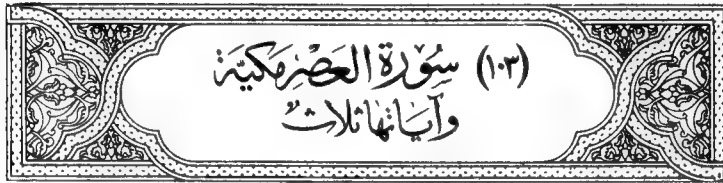 (١٠٣) سُورَة العَصْرِ مَكيَّة
وآيَاتها ثلاث